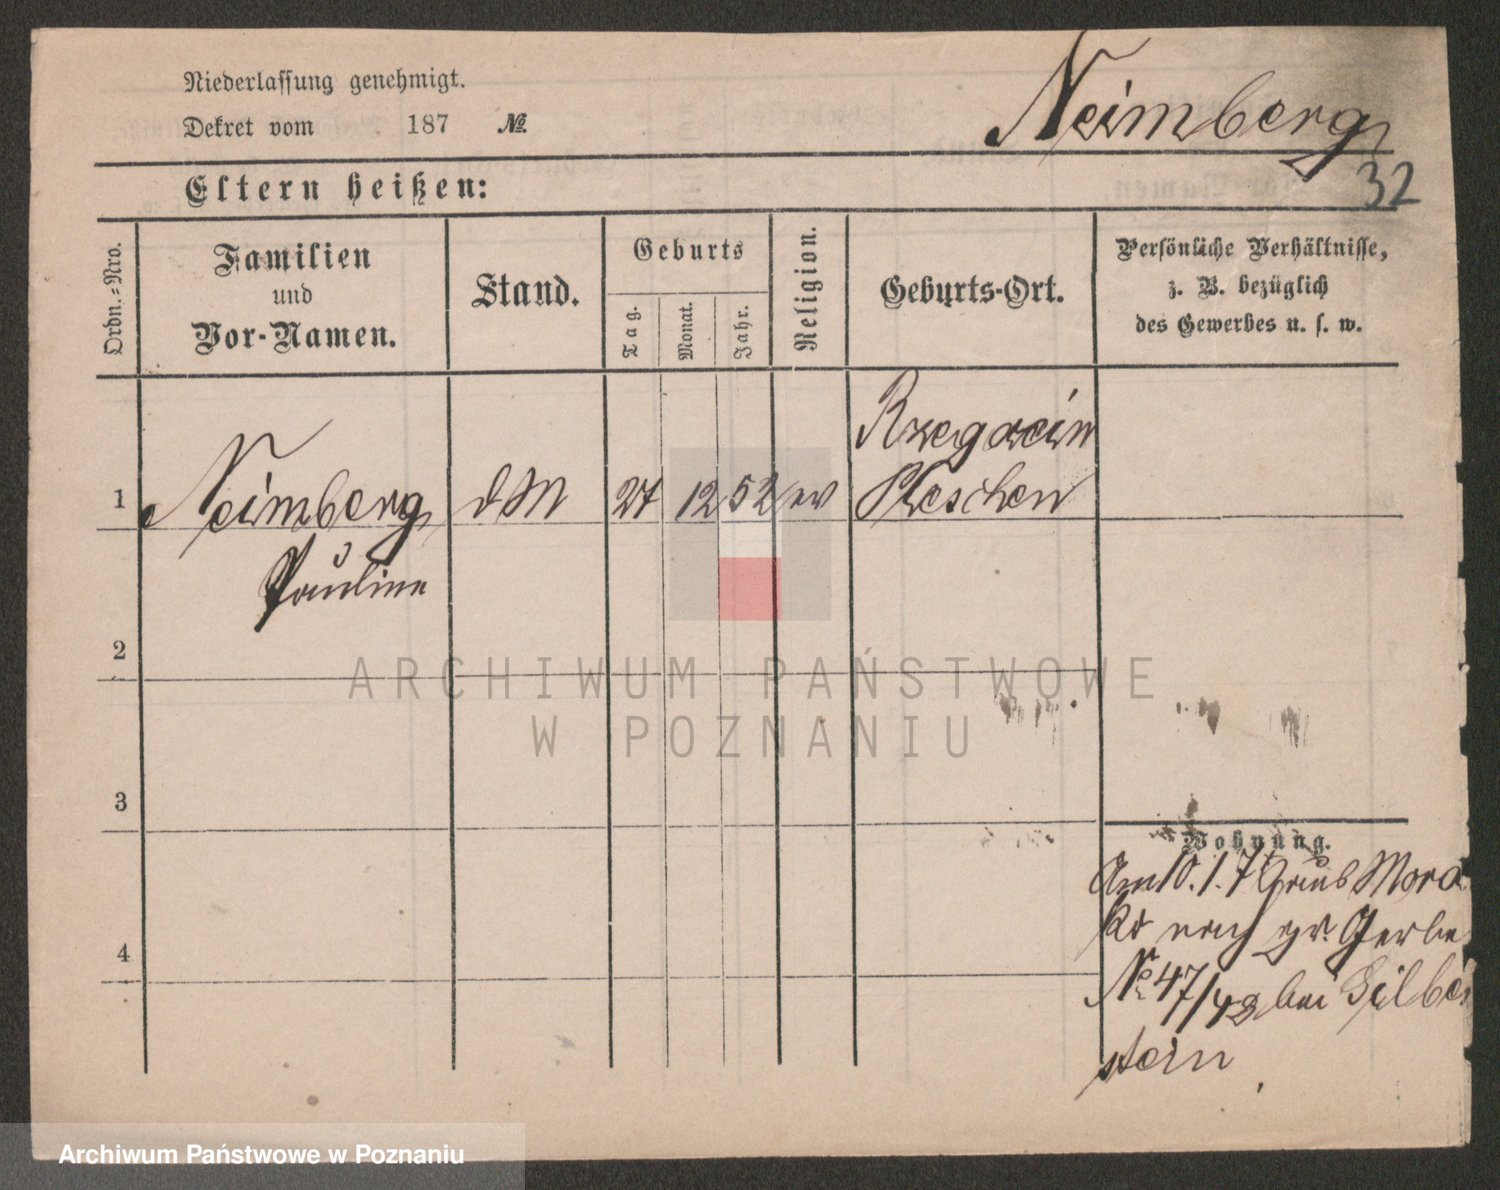 Niederlassung genehmigt.
Dekret vom 187 №
Neimberg
32
Eltern heißen:
Ordn.-Nro.
Familien
und
Vor-Namen.
Stand.
Geburts
Tag.
Monat.
Jahr.
Religion.
Geburts-Ort.
Persönliche Verhältnisse,
z. B. bezüglich
des Gewerbes u. s. w.
1 Neimberg dM 27 12 52 ev
Pleschen
Pauline
2
3
4
Wohnung.
Am 10. 1. 7
nach gr. Gerbe
№ 47/48 bei Silber
stein
ARCHIWUM PAŃSTWOWE
W POZNANIU
Archiwum Państwowe w Poznaniu